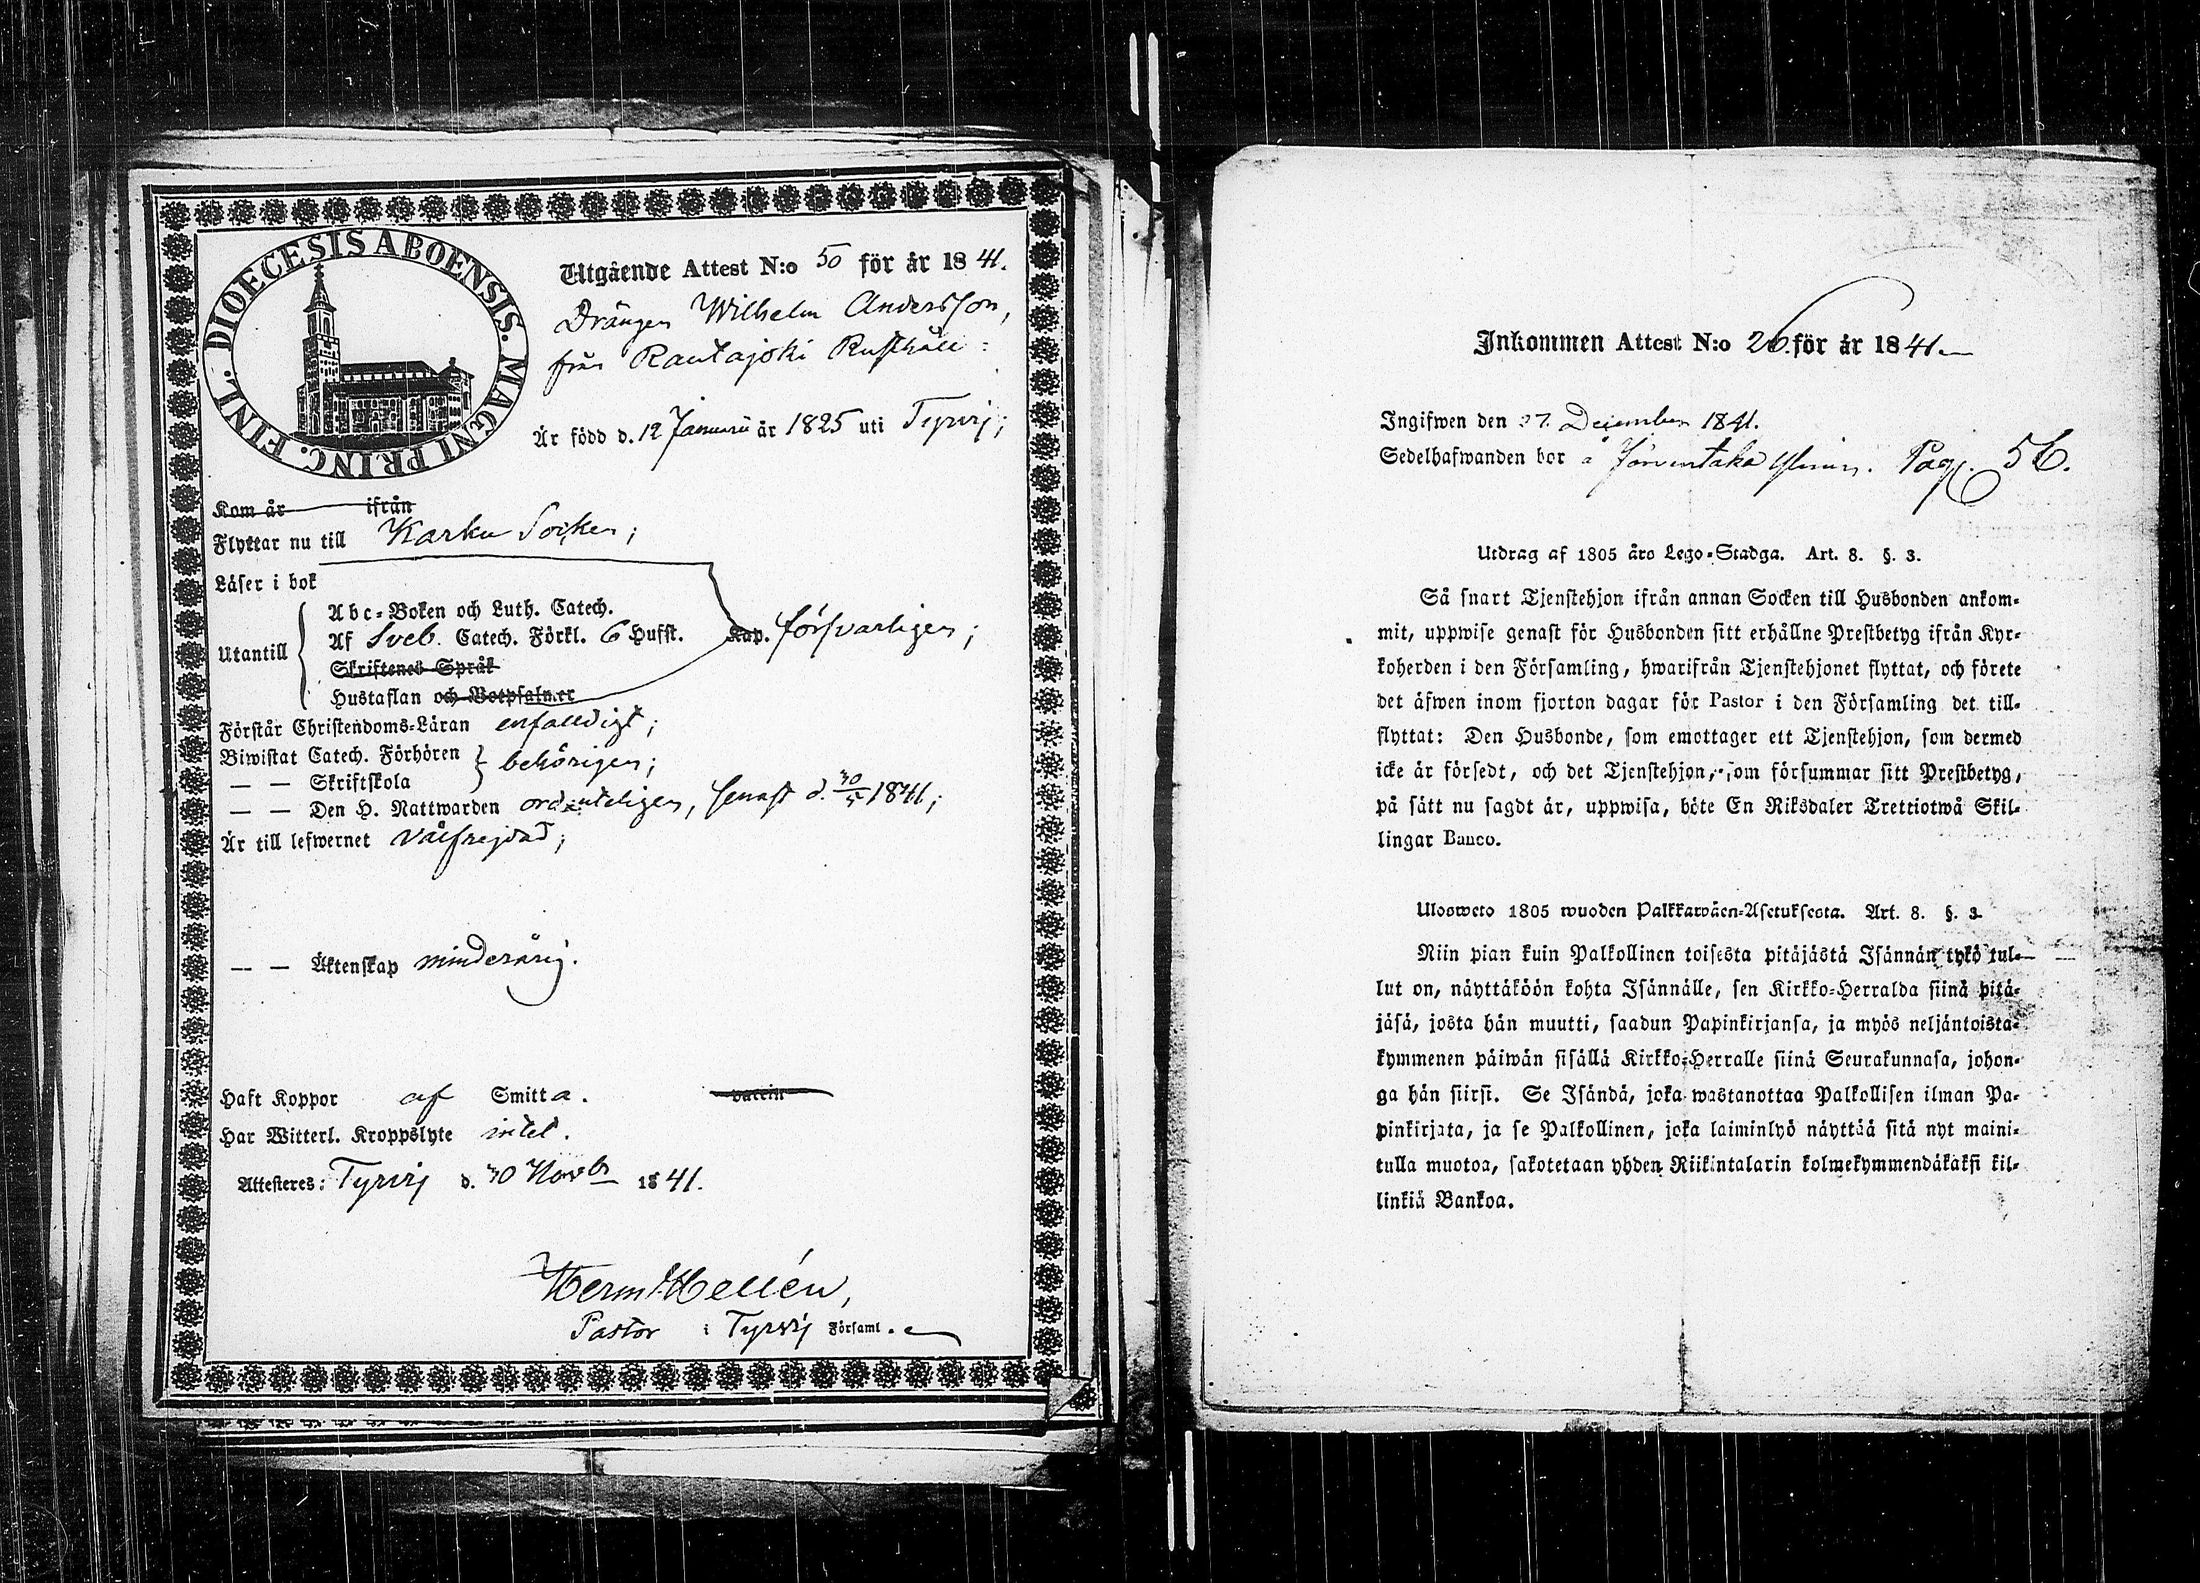 DIOECESIS ABOENSIS. MAGNI PRINC. FINL.
Utgående Attest N:o 50 för år 1841.
Drängen Wilhelm Andersson,
från Rautajoki Rusthåll:
Är född d. 12 Januarii år 1825 uti Tyrvis;
Kom år ifrån
Flyttar nu till Karku Socken;
Läser i bok
Utantill
Abc-Boken och Luth. Catech.
Af Sveb. Catech. Förkl. 6 Hufst. Kap. försvarligen;
Skriftenes Språk
Hustaflan och Botpsalmer
Förstår Christendoms-Läran enfaldigt;
Biwistat Catech. Förhören behörigen;
— — Skriftskola
— — Den H. Nattwarden ordenteligen, senast d. 30/5 1841;
Är till lefwernet välfrejdad;
— — Äktenskap minderårig.
Haft Koppor af Smitta. vaccin
Har Witterl. Kroppslyte intet.
Attesteres: Tyrvis d. 30 Novbr 1841.
Herm Hellén,
Pastor i Tyrvis Församl.
Inkommen Attest N:o 26. för år 1841.
Ingifwen den 27 December 1841.
Sedelhafwanden bor å Järventaka Pag. 56.
Utdrag af 1805 års Lego-Stadga. Art. 8. §. 3.
Så snart Tjenstehjon ifrån annan Socken till Husbonden ankom-
mit, uppwise genast för Husbonden sitt erhållne Prestbetyg ifrån Kyr-
koherden i den Församling, hwarifrån Tjenstehjonet flyttat, och förete
det äfwen inom fjorton dagar för Pastor i den Församling det till-
flyttat: Den Husbonde, som emottager ett Tjenstehjon, som dermed
icke är försedt, och det Tjenstehjon, som försummar sitt Prestbetyg,
på sätt nu sagdt är, uppwisa, böte En Riksdaler Trettiotwå Skil-
lingar Banco.
Ulosweto 1805 wuoden Palkkawäen-Asetuksesta. Art. 8. §. 3.
Niin pian kuin Palkollinen toisesta pitäjästä Isännän tykö tul-
lut on, näyttäköön kohta Isännälle, sen Kirkko-Herralda siinä pitä-
jäsä, josta hän muutti, saadun Papinkirjansa, ja myös neljäntoista-
kymmenen päiwän sisällä Kirkko-Herralle siinä Seurakunnasa, johon-
ga hän siirsi. Se Isändä, joka wastanottaa Palkollisen ilman Pa-
pinkirjata, ja se Palkollinen, joka laiminlyö näyttää sitä nyt maini-
tulla muotoa, sakotetaan yhden Riikintalarin kolmekymmendäkaksi kil-
linkiä Bankoa.